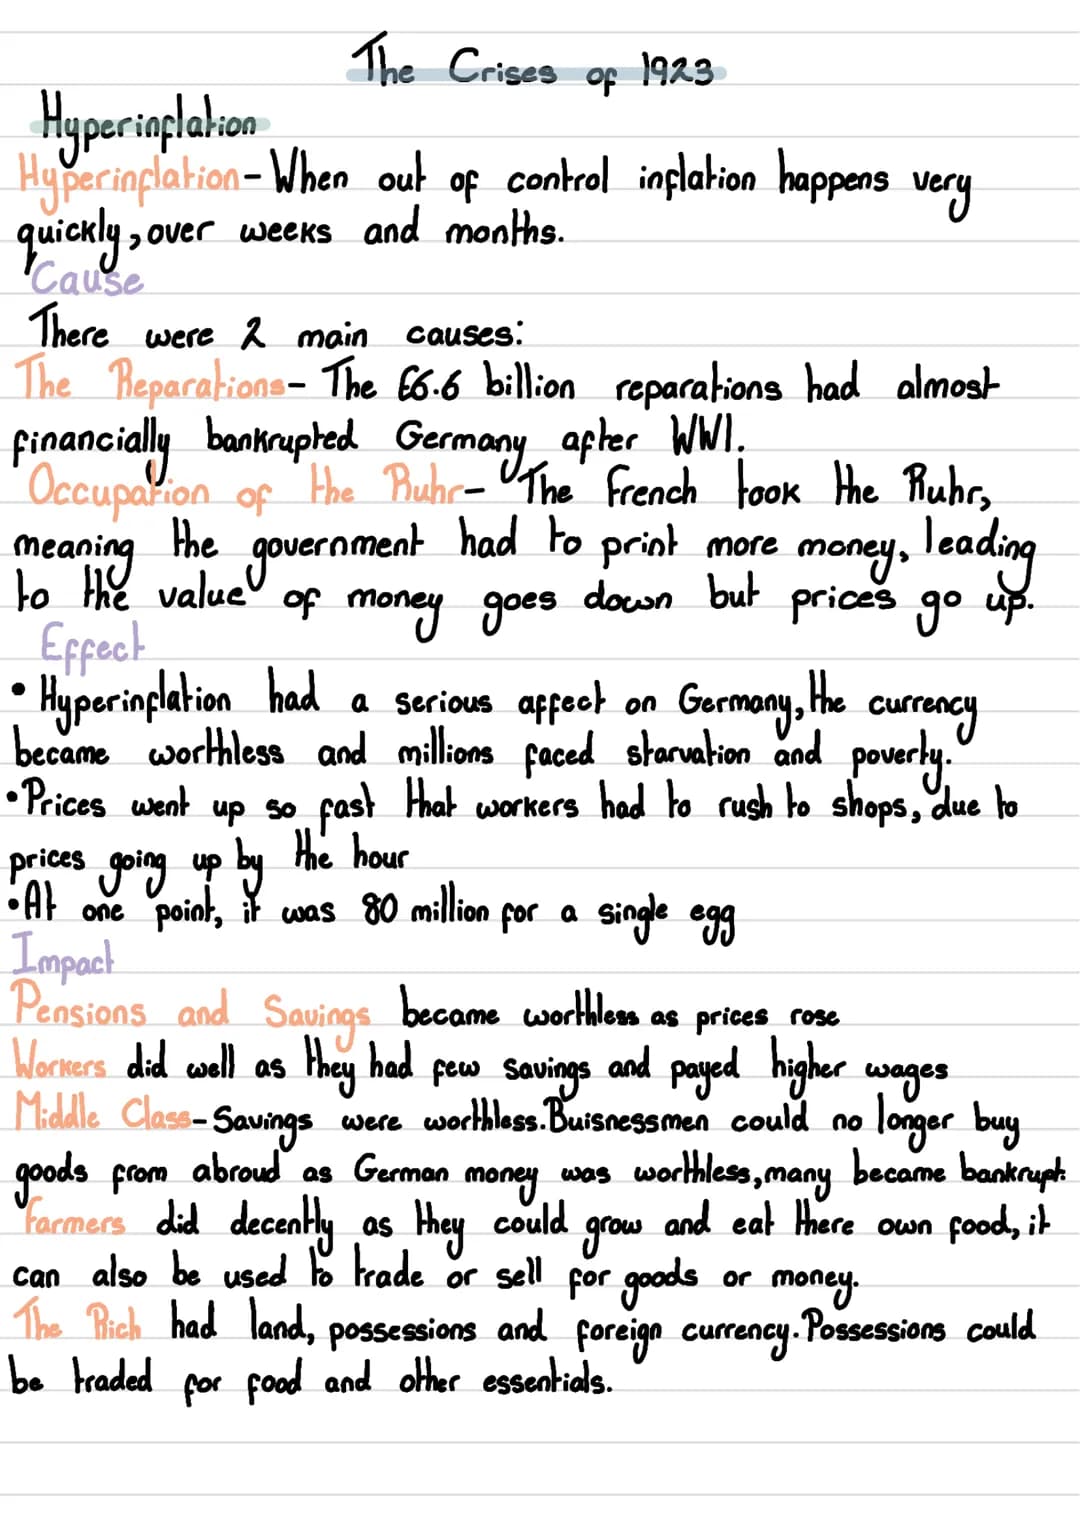 The Crises of 1923
Hyperinflation
Hyperinflation- When out of control inflation happens very
quickly, over weeks and months.
Cause
There were 2 main causes:
The Reparations- The £6.6 billion reparations had almost
financially bankrupted Germany after WW1.
Occupation of the Ruhr- The French took the Ruhr,
meaning the government had to print more money, leading
to the value of money goes down but prices go up.
Effect
• Hyperinflation had a serious affect on Germany, the currency
became worthless and millions faced starvation and poverty.
• Prices went up so fast that workers had to rush to shops, due to
prices going up by the hour
• At one point, it was 80 million for a single egg
Impact
Pensions and Savings became worthless as prices rose
Workers did well as they had few savings and payed higher wages
Middle Class- Savings were worthless. Buisnessmen could no longer buy
goods from abroud as German money was worthless, many became bankrupt.
Farmers did decently as they could grow and eat there own food, it
can also be used to trade or sell for goods or money.
The Rich had land, possessions and foreign currency. Possessions could
be traded for food and other essentials.